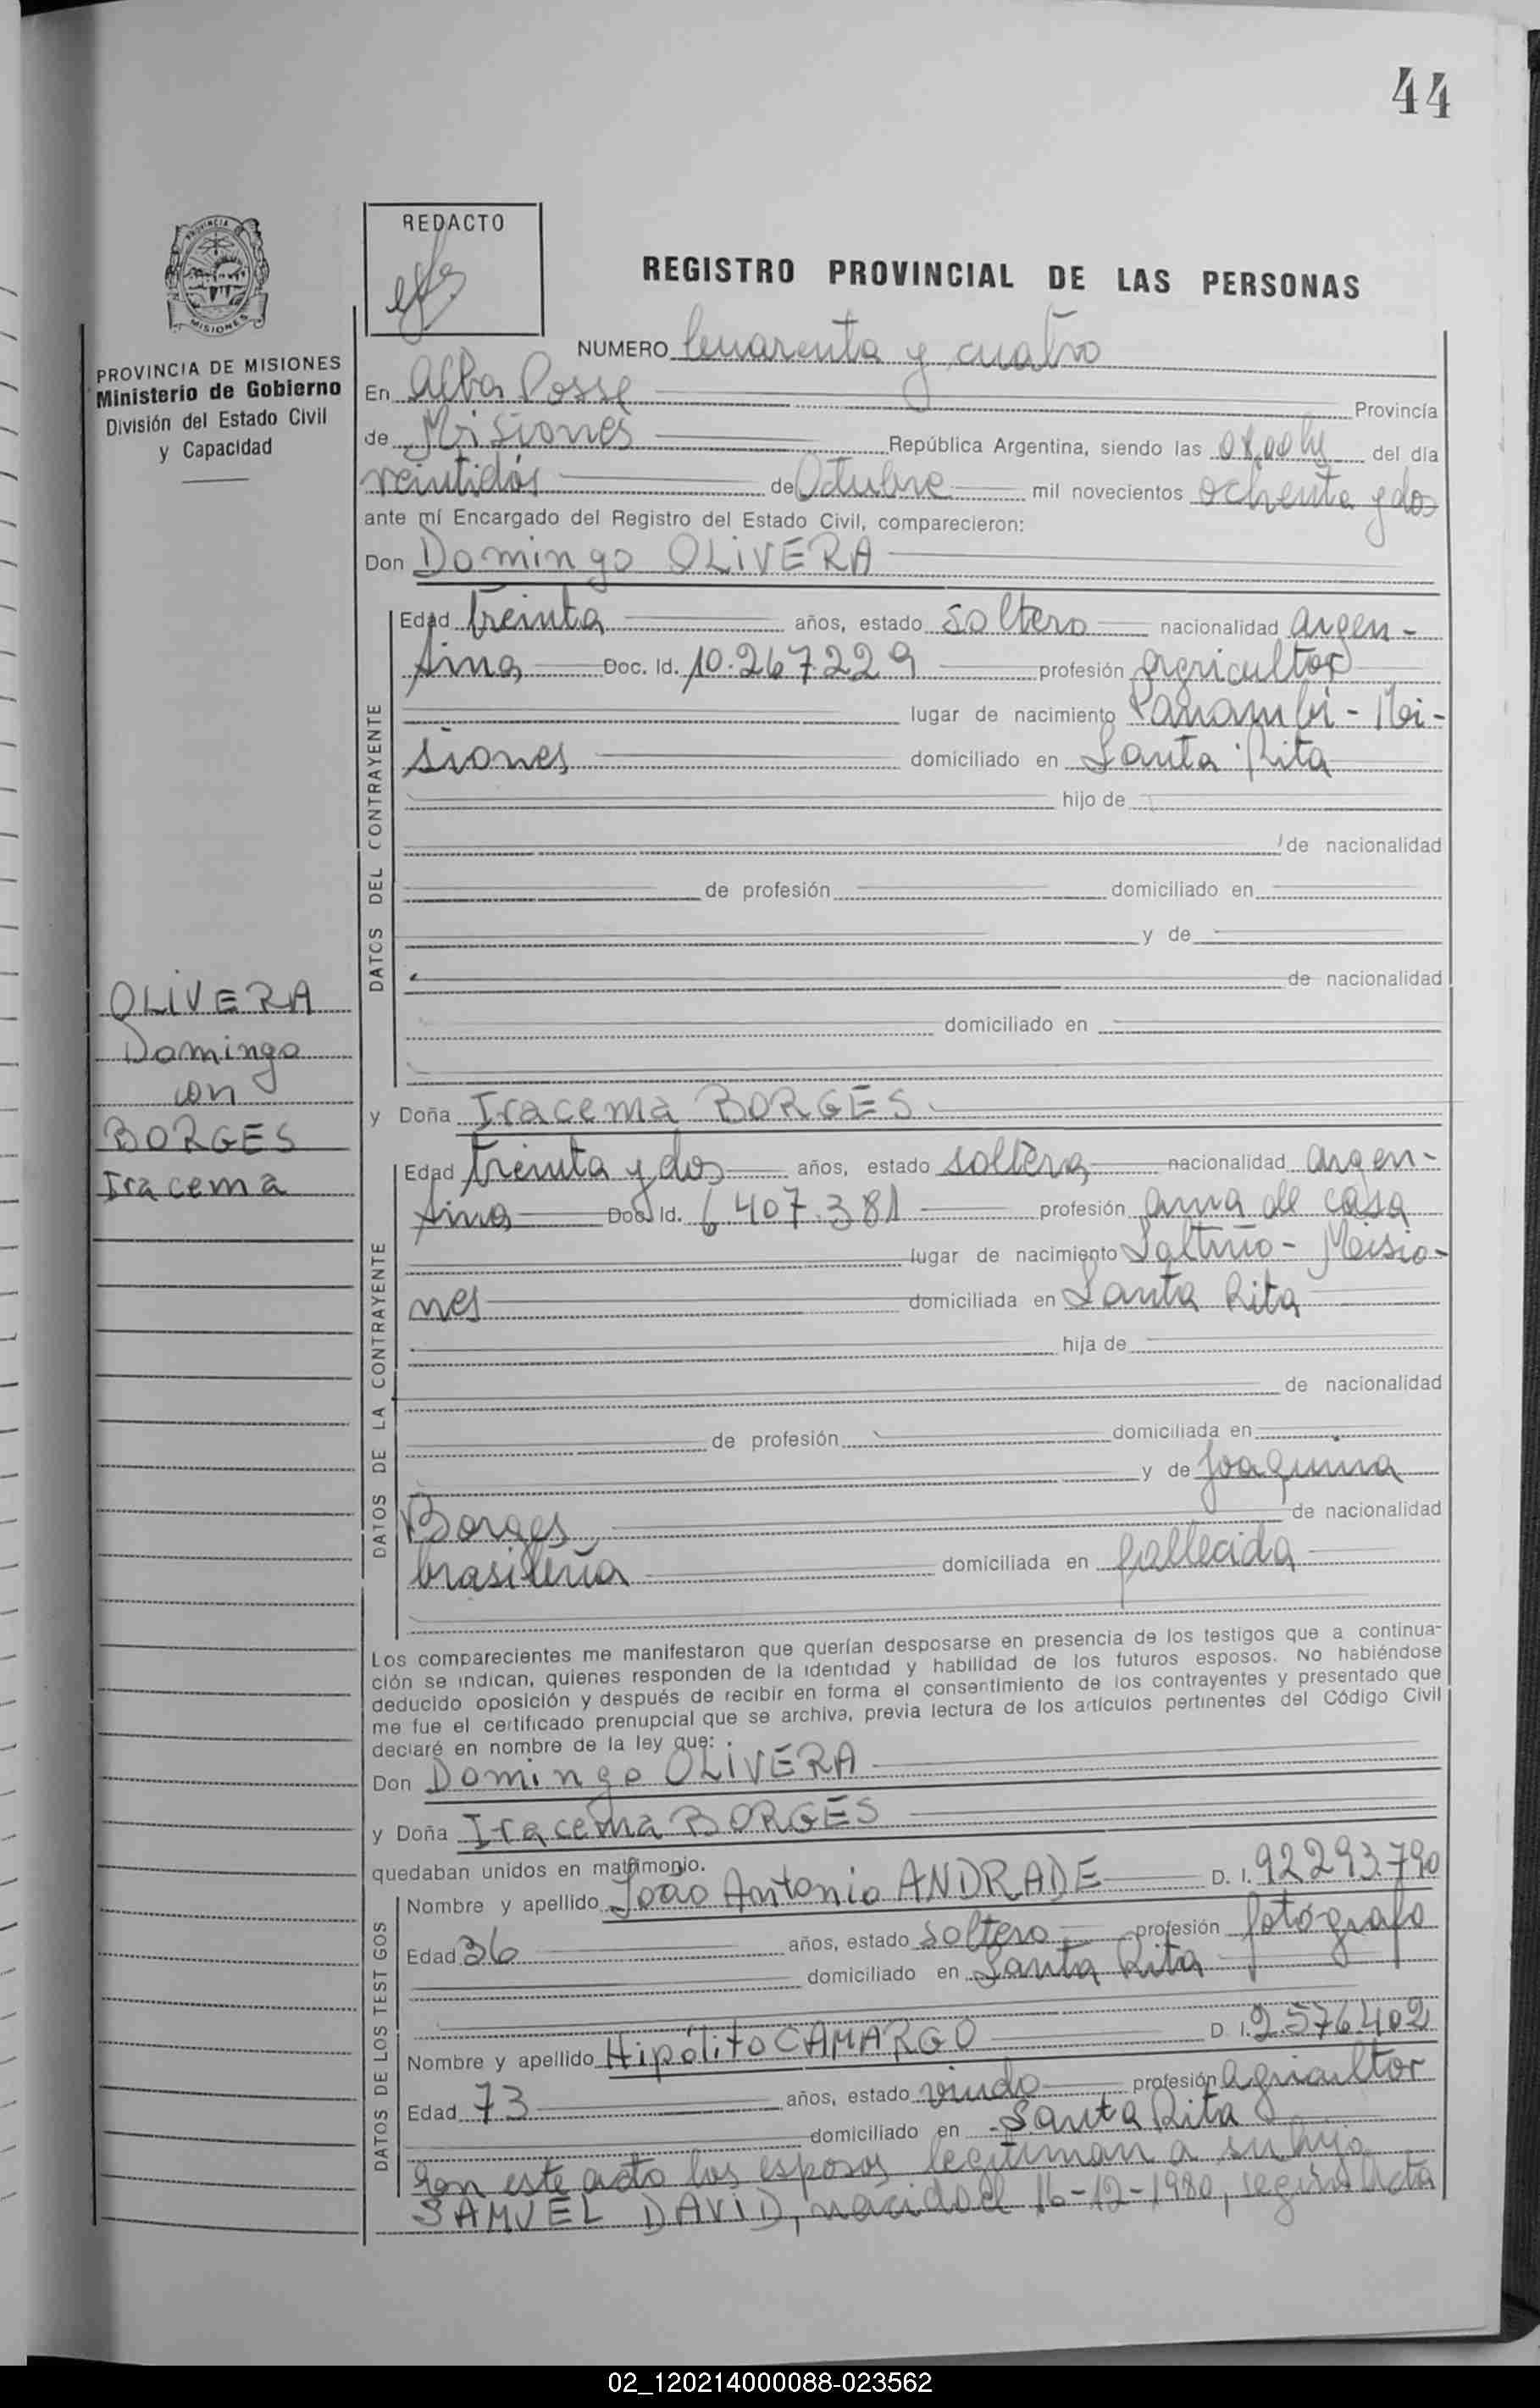 44
PROVINCIA DE
MISIONES
PROVINCIA DE MISIONES
Ministerio de Gobierno
División del Estado Civil
y Capacidad
REDACTO
REGISTRO PROVINCIAL DE LAS PERSONAS
NUMERO Cuarenta y cuatro
En Alba Posse Provincia
de Misiones República Argentina, siendo las 08,00 hs del día
veintidós de Octubre mil novecientos ochenta y dos
ante mí Encargado del Registro del Estado Civil, comparecieron:
Don Domingo OLIVERA
DATOS DEL CONTRAYENTE
Edad treinta años, estado soltero nacionalidad argen-
tina Doc. Id. 10.267.229 profesión agricultor
lugar de nacimiento Panambí - Mi-
siones domiciliado en Santa Rita
hijo de
de nacionalidad
de profesión domiciliado en
y de
de nacionalidad
domiciliado en
OLIVERA
Domingo
con
BORGES
Iracema
y Doña Iracema BORGES
DATOS DE LA CONTRAYENTE
Edad treinta y dos años, estado soltera nacionalidad argen-
tina Doc. Id. 6.407.381 profesión ama de casa
lugar de nacimiento Saltiño - Misio-
nes domiciliada en Santa Rita
hija de
de nacionalidad
de profesión domiciliada en
y de Joaquina
Borges de nacionalidad
brasileña domiciliada en fallecida
Los comparecientes me manifestaron que querían desposarse en presencia de los testigos que a continua-
ción se indican, quienes responden de la identidad y habilidad de los futuros esposos. No habiéndose
deducido oposición y después de recibir en forma el consentimiento de los contrayentes y presentado que
me fue el certificado prenupcial que se archiva, previa lectura de los artículos pertinentes del Código Civil
declaré en nombre de la ley que:
Don Domingo OLIVERA
y Doña Iracema BORGES
quedaban unidos en matrimonio.
DATOS DE LOS TESTIGOS
Nombre y apellido João Antonio ANDRADE D. I. 92.293.790
Edad 36 años, estado soltero profesión fotógrafo
domiciliado en Santa Rita
Nombre y apellido Hipólito CAMARGO D. I. 2.576.402
Edad 73 años, estado viudo profesión agricultor
domiciliado en Santa Rita
Con este acto los esposos legitiman a su hijo
SAMUEL DAVID, nacido el 16-12-1980, según Acta
02_120214000088-023562